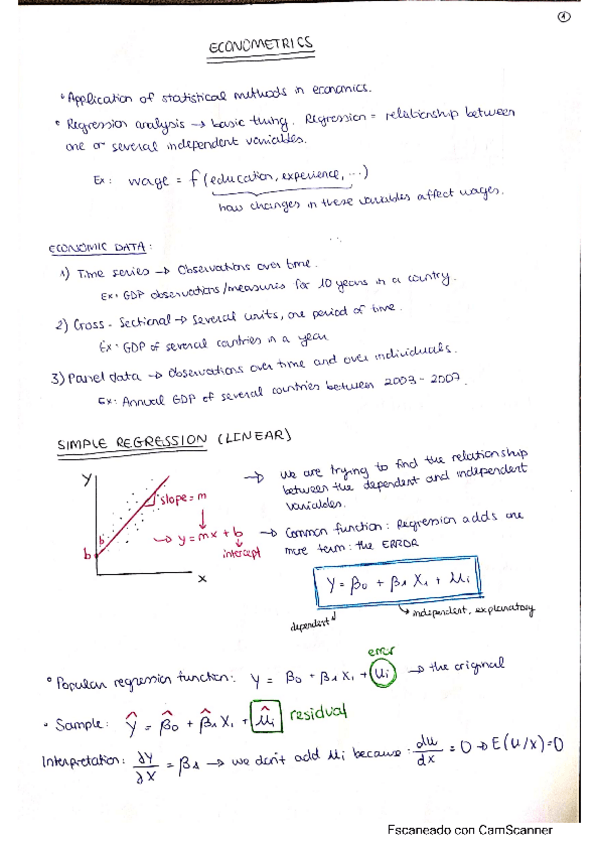 1
ECONOMETRICS
• Application of statistical methods in economics.
• Regression analysis → basic thing. Regression = relationship between
one or several independent variables.
Ex: wage = f (education, experience, ...)
how changes in these variables affect wages.
ECONOMIC DATA:
1) Time series → Observations over time.
Ex: GDP observations/measures for 10 years in a country.
2) Cross-Sectional → Several units, one period of time.
Ex: GDP of several countries in a year
3) Panel data → Observations over time and over individuals.
Ex: Annual GDP of several countries between 2003-2007.
SIMPLE REGRESSION (LINEAR)
y
slope = m
b
b
→ y = mx + b
intercept
x
→ We are trying to find the relationship
between the dependent and independent
variables.
→ Common function: Regression adds one
more term: the ERROR
Y = β0 + β1 X1 + Ui
dependent
independent, explanatory
error
• Popular regression function: Y = β0 + β1 X1 + Ui → the original
• Sample: Ŷ = β̂0 + β̂1 X1 + ûi residual
Interpretation: ∂Y/∂X = β1 → we don't add Ui because: du/dx = 0 → E(U/X)=0
Escaneado con CamScanner